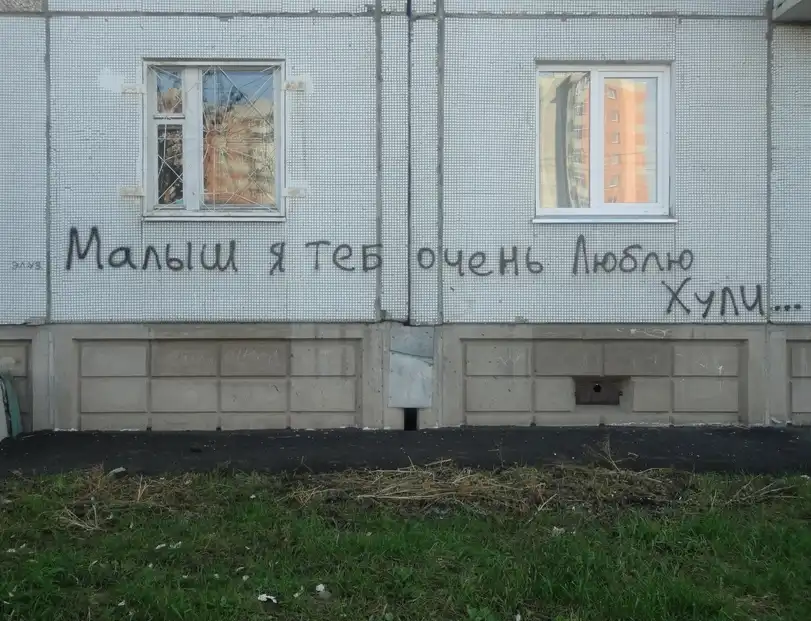 Малыш я теб очень Люблю
Хули...